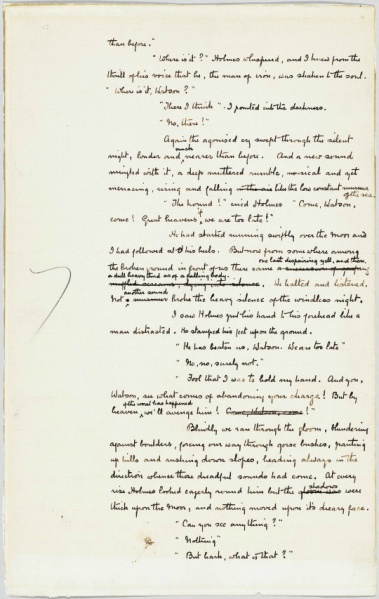 than before."
"Where is it?" Holmes whispered, and I knew from the
thrill of his voice that he, the man of iron, was shaken to the soul.
"Where is it, Watson?"
"There I think" - I pointed into the darkness.
"No, there!"
Again the agonised cry swept through the silent
much
night, louder and nearer than before. And a new sound
mingled with it, a deep muttered rumble, musical and yet
menacing, rising and falling like the low constant murmur
of the sea.
"The hound!" cried Holmes "Come, Watson,
come! Great heavens, if we are too late!"
He had started running swiftly over the Moor and
I had followed at his heels. But now from somewhere among
one last despairing yell, and then,
the broken ground in front of us there came
a dull heavy thud as of a falling body.
He halted and listened.
another sound
Not broke the heavy silence of the windless night.
I saw Holmes put his hand to his forehead like a
man distracted. He stamped his feet upon the ground.
"He has beaten us, Watson. We are too late"
"No, no, surely not."
"Fool that I was to hold my hand. And you,
Watson, see what comes of abandoning your charge! But by
if the worst has happened
heaven, we'll avenge him! Come, Watson, come!"
Blindly we ran through the gloom, blundering
against boulders, forcing our way through gorse bushes, panting
up hills and rushing down slopes, heading always in the
direction whence those dreadful sounds had come. At every
shadows
rise Holmes looked eagerly round him but the were
thick upon the Moor, and nothing moved upon its dreary face.
"Can you see anything?"
"Nothing"
"But hark, what is that?"